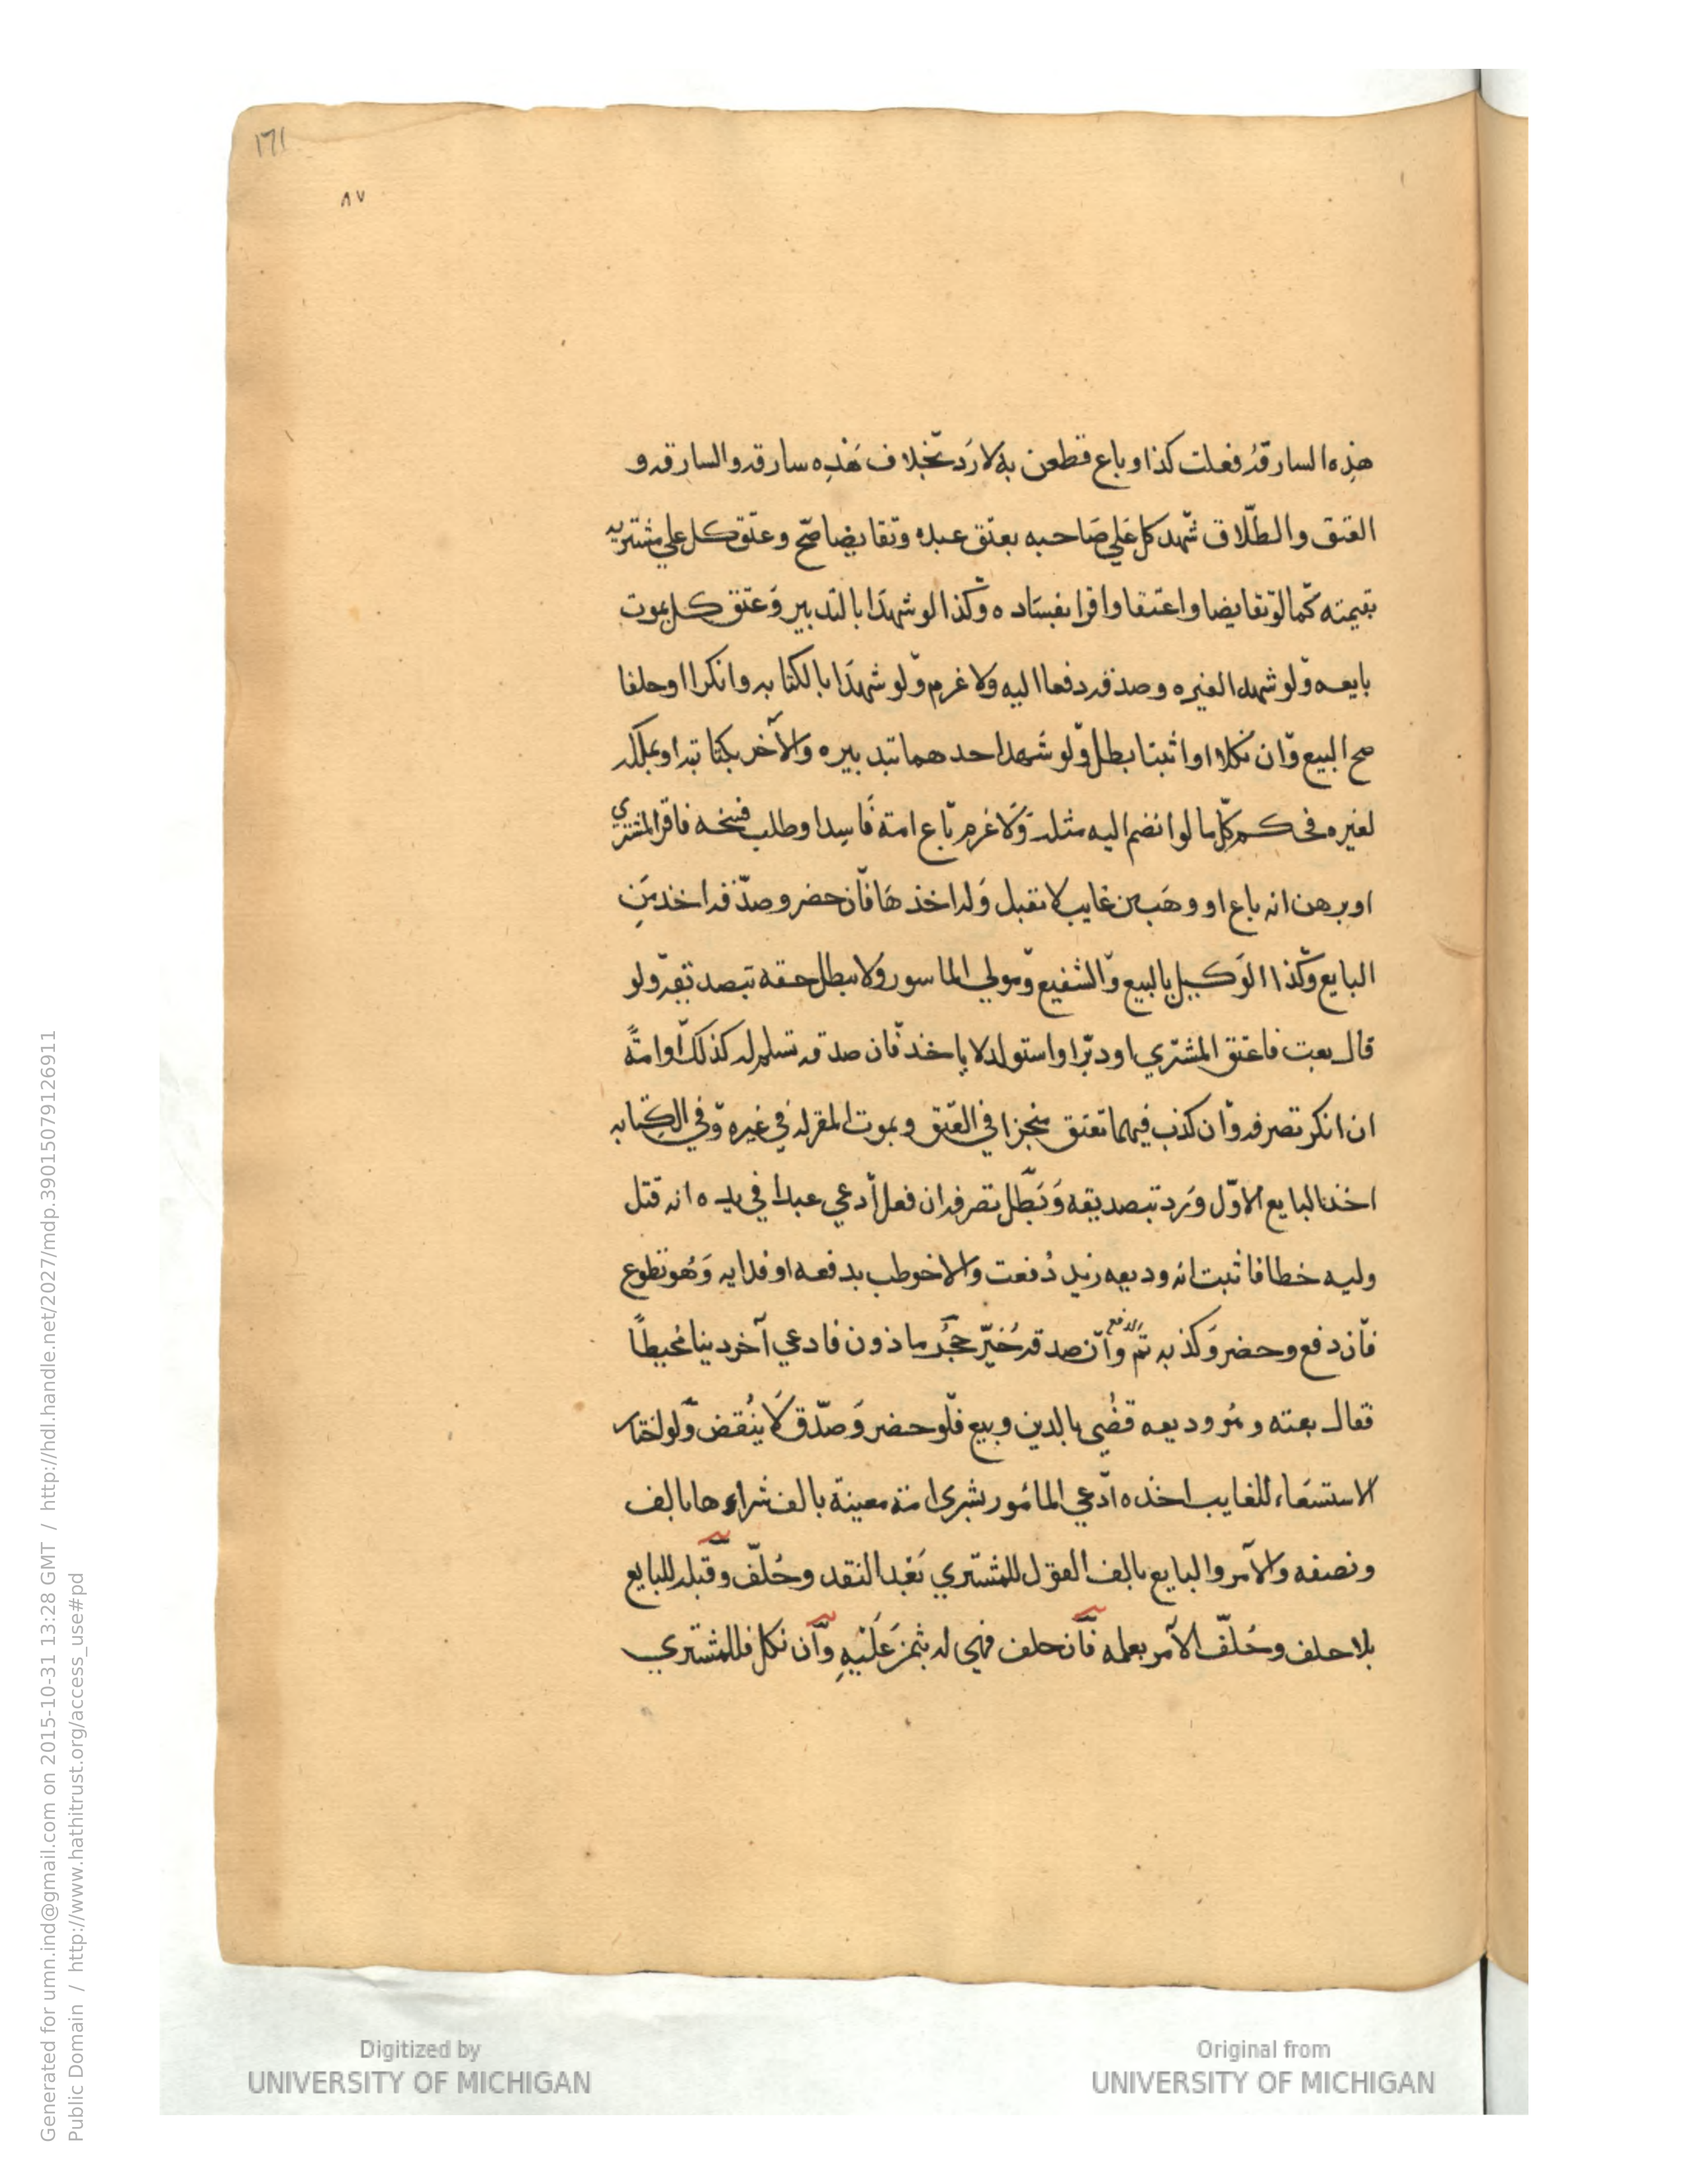 ١٦١
٨٧
هذِه السارقة فعلت كذا وباع فطعن به لا رد بخلاف هَذِه سارقة والسارقة و
العتق والطلاق شهد كل علي صَاحبه بعتق عبده وتقايضا صح وعتق كل علي مشتريه
بقيمته كما لو تقايضا واعتقا واقرا بفساده وكذا لو شهدَا بالتدبير وَعتق كل بموت
بايعه ولو شهدا لغيره وصدقه دفعا اليه ولا غرم ولو شهدَا بالكتابه وانكرا او حلفا
صح البيع وان نكلا او اثبتا بطل ولو شهد احدهما بتدبيره والآخر بكتابته او بملكه
لغيره فحكم كل ما لو انضم اليه مثله وَلا غرم باع امة فَاسدا وطلب فسخه فاقر المشتري
او برهن انه باع او وهَب من غايب لا تقبل وَله اخذهَا فان حضر وصدقه اخذ مِن
البايع وكذا الوَكيل بالبيع والشفيع ومولي الماسور ولا يبطل حقه بتصديقه ولو
قال بعت فاعتق المشتري او دبر او استولد لا ياخذ فان صدقه تسلم له كذلك او امةً
ان انكر تصرفه وان كذب فيهما تعتق منجزا في العتق وبموت المقر له في غيره وفي الكتابه
اخذ البايع الاول وَرد بتصديقه وَبَطل تصرفه ان فعل ادعي عبدا في يده انه قتل
وليه خطا فاثبت انه وديعه زيد دُفعت والا خوطب بدفعه او فدايه وَهُو تطوع
فان دفع وحضر وَكذبه تم الدفع وان صدقه خُيّر حَجَر ماذون فادعي آخر دينا مُحيطًا
فقال بعته وهُو وديعه قضُي بالدين وبيع فلو حضر وَصدّق لَا يُنقض ولو اختار
الاستسعَاء للغايب اخذه ادعي المامُور بشري امة معينة بالف شراءها بالف
ونصفه والآمر والبايع بالف القول للمشتري بَعْد النقد وحُلّف وقبله للبايع
بلا حلف وحُلّف الآمر بعلمه فان حلف فهي له بثمن عَلَيْهِ وان نكل فللمشتري
Digitized by
UNIVERSITY OF MICHIGAN
Original from
UNIVERSITY OF MICHIGAN
Generated for umn.ind@gmail.com on 2015-10-31 13:28 GMT / http://hdl.handle.net/2027/mdp.39015079126911
Public Domain / http://www.hathitrust.org/access_use#pd